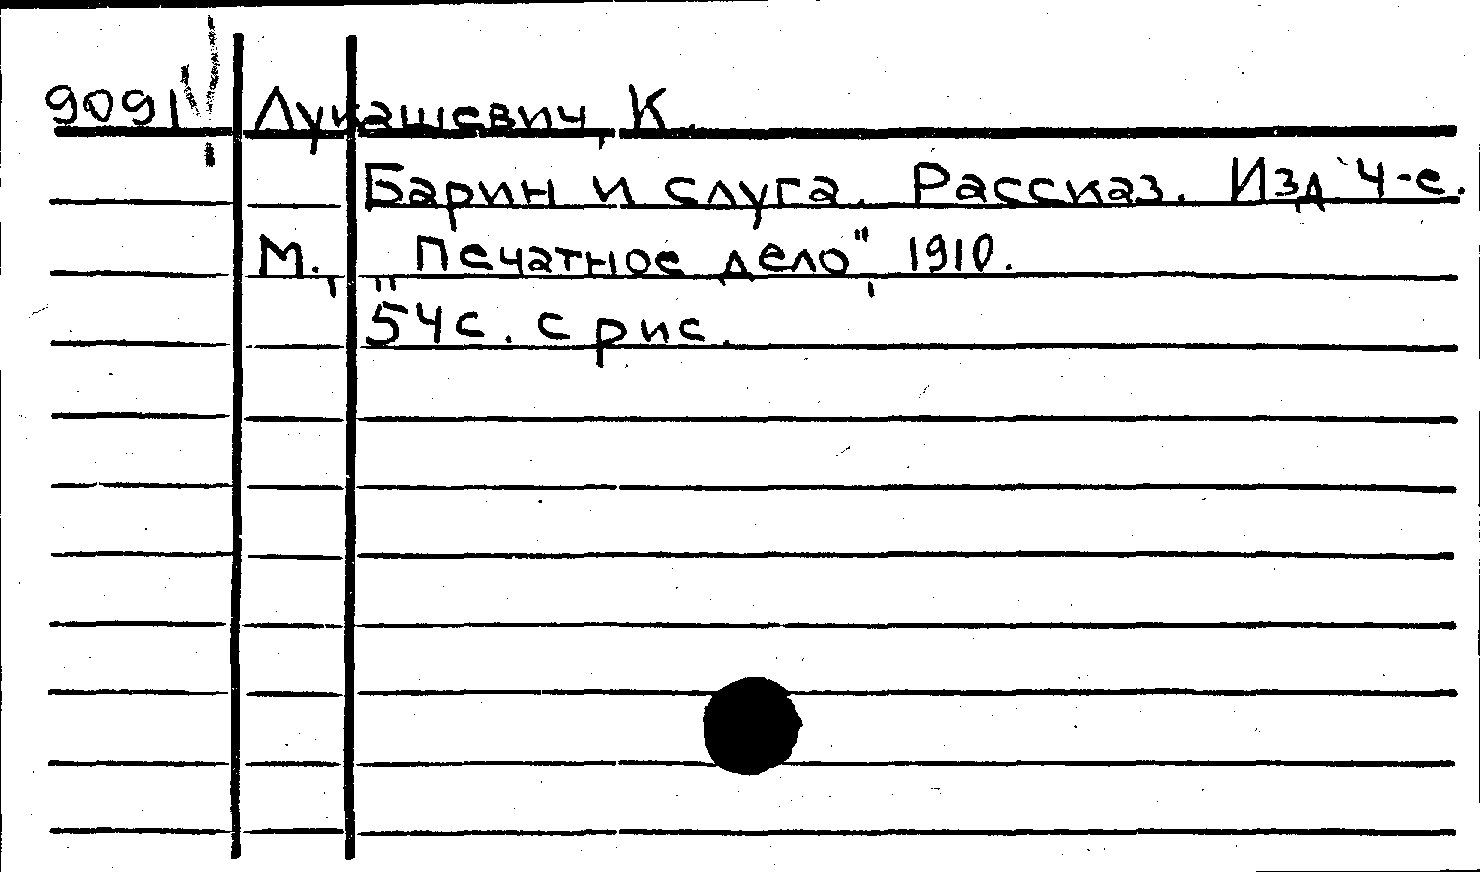 9091 Лукашевич, К.
Барин и слуга. Рассказ. Изд. 4-е.
М., „Печатное дело", 1910.
54 с. с рис.